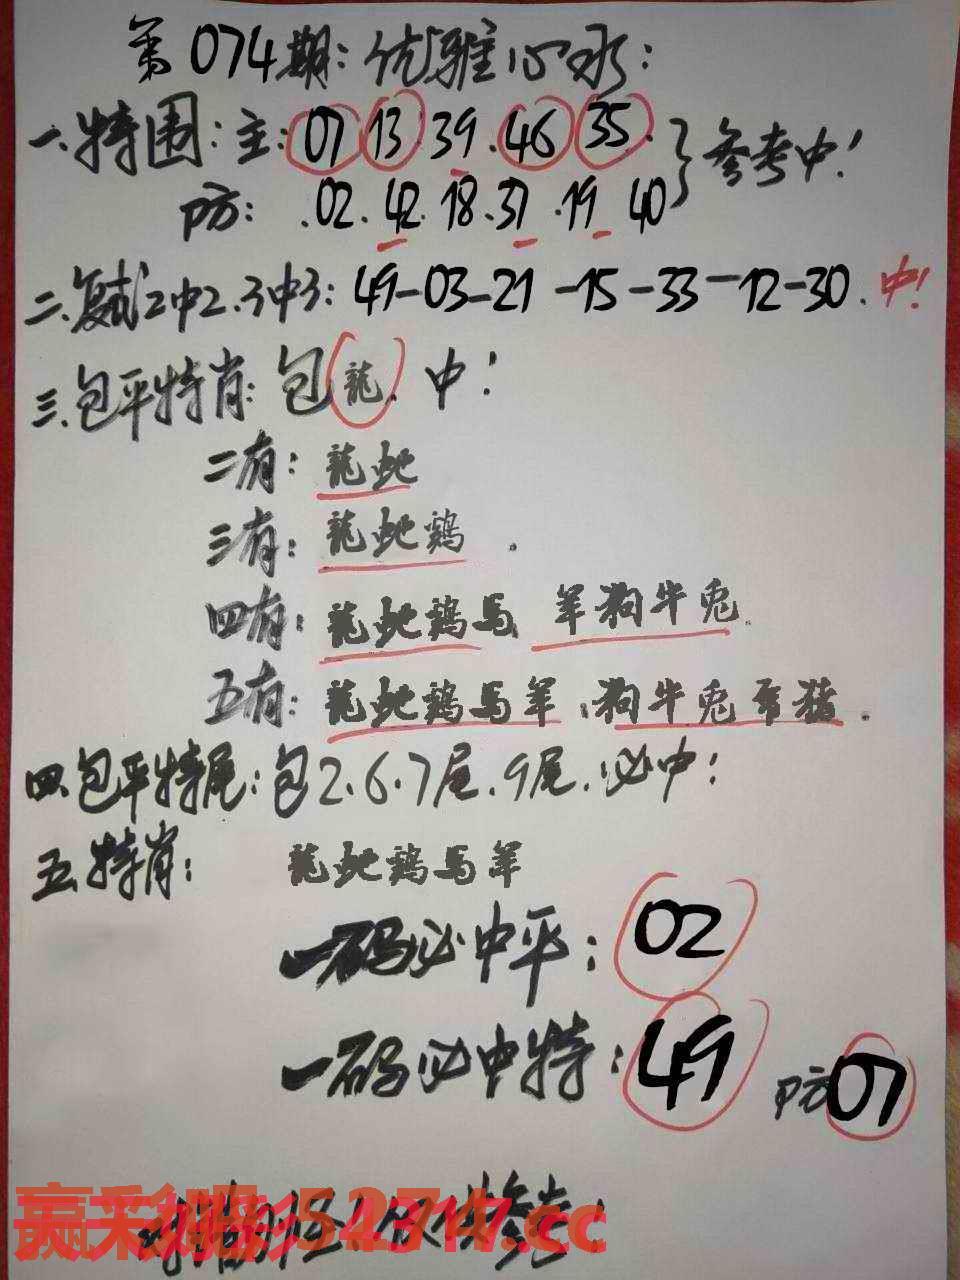 第074期:优雅心水:
一.特围:主:07.13.39.46.35.
防:.02.42.18.37.19.40 }参考中!
二.复式2中2.3中3:49-03-21-15-33-12-30.中!
三.包平特肖:包龍.中!
二有:龍蛇
三有:龍蛇鷄.
四有:龍蛇鷄馬.羊狗牛兎.
五有:龍蛇鷄馬羊.狗牛兎..猪.
四.包平特尾:包2.6.7尾.9尾.必中:
五.特肖:龍蛇鷄馬羊
一码必中平:02
一码必中特:49 防07
赢彩 .cc 仅供参考